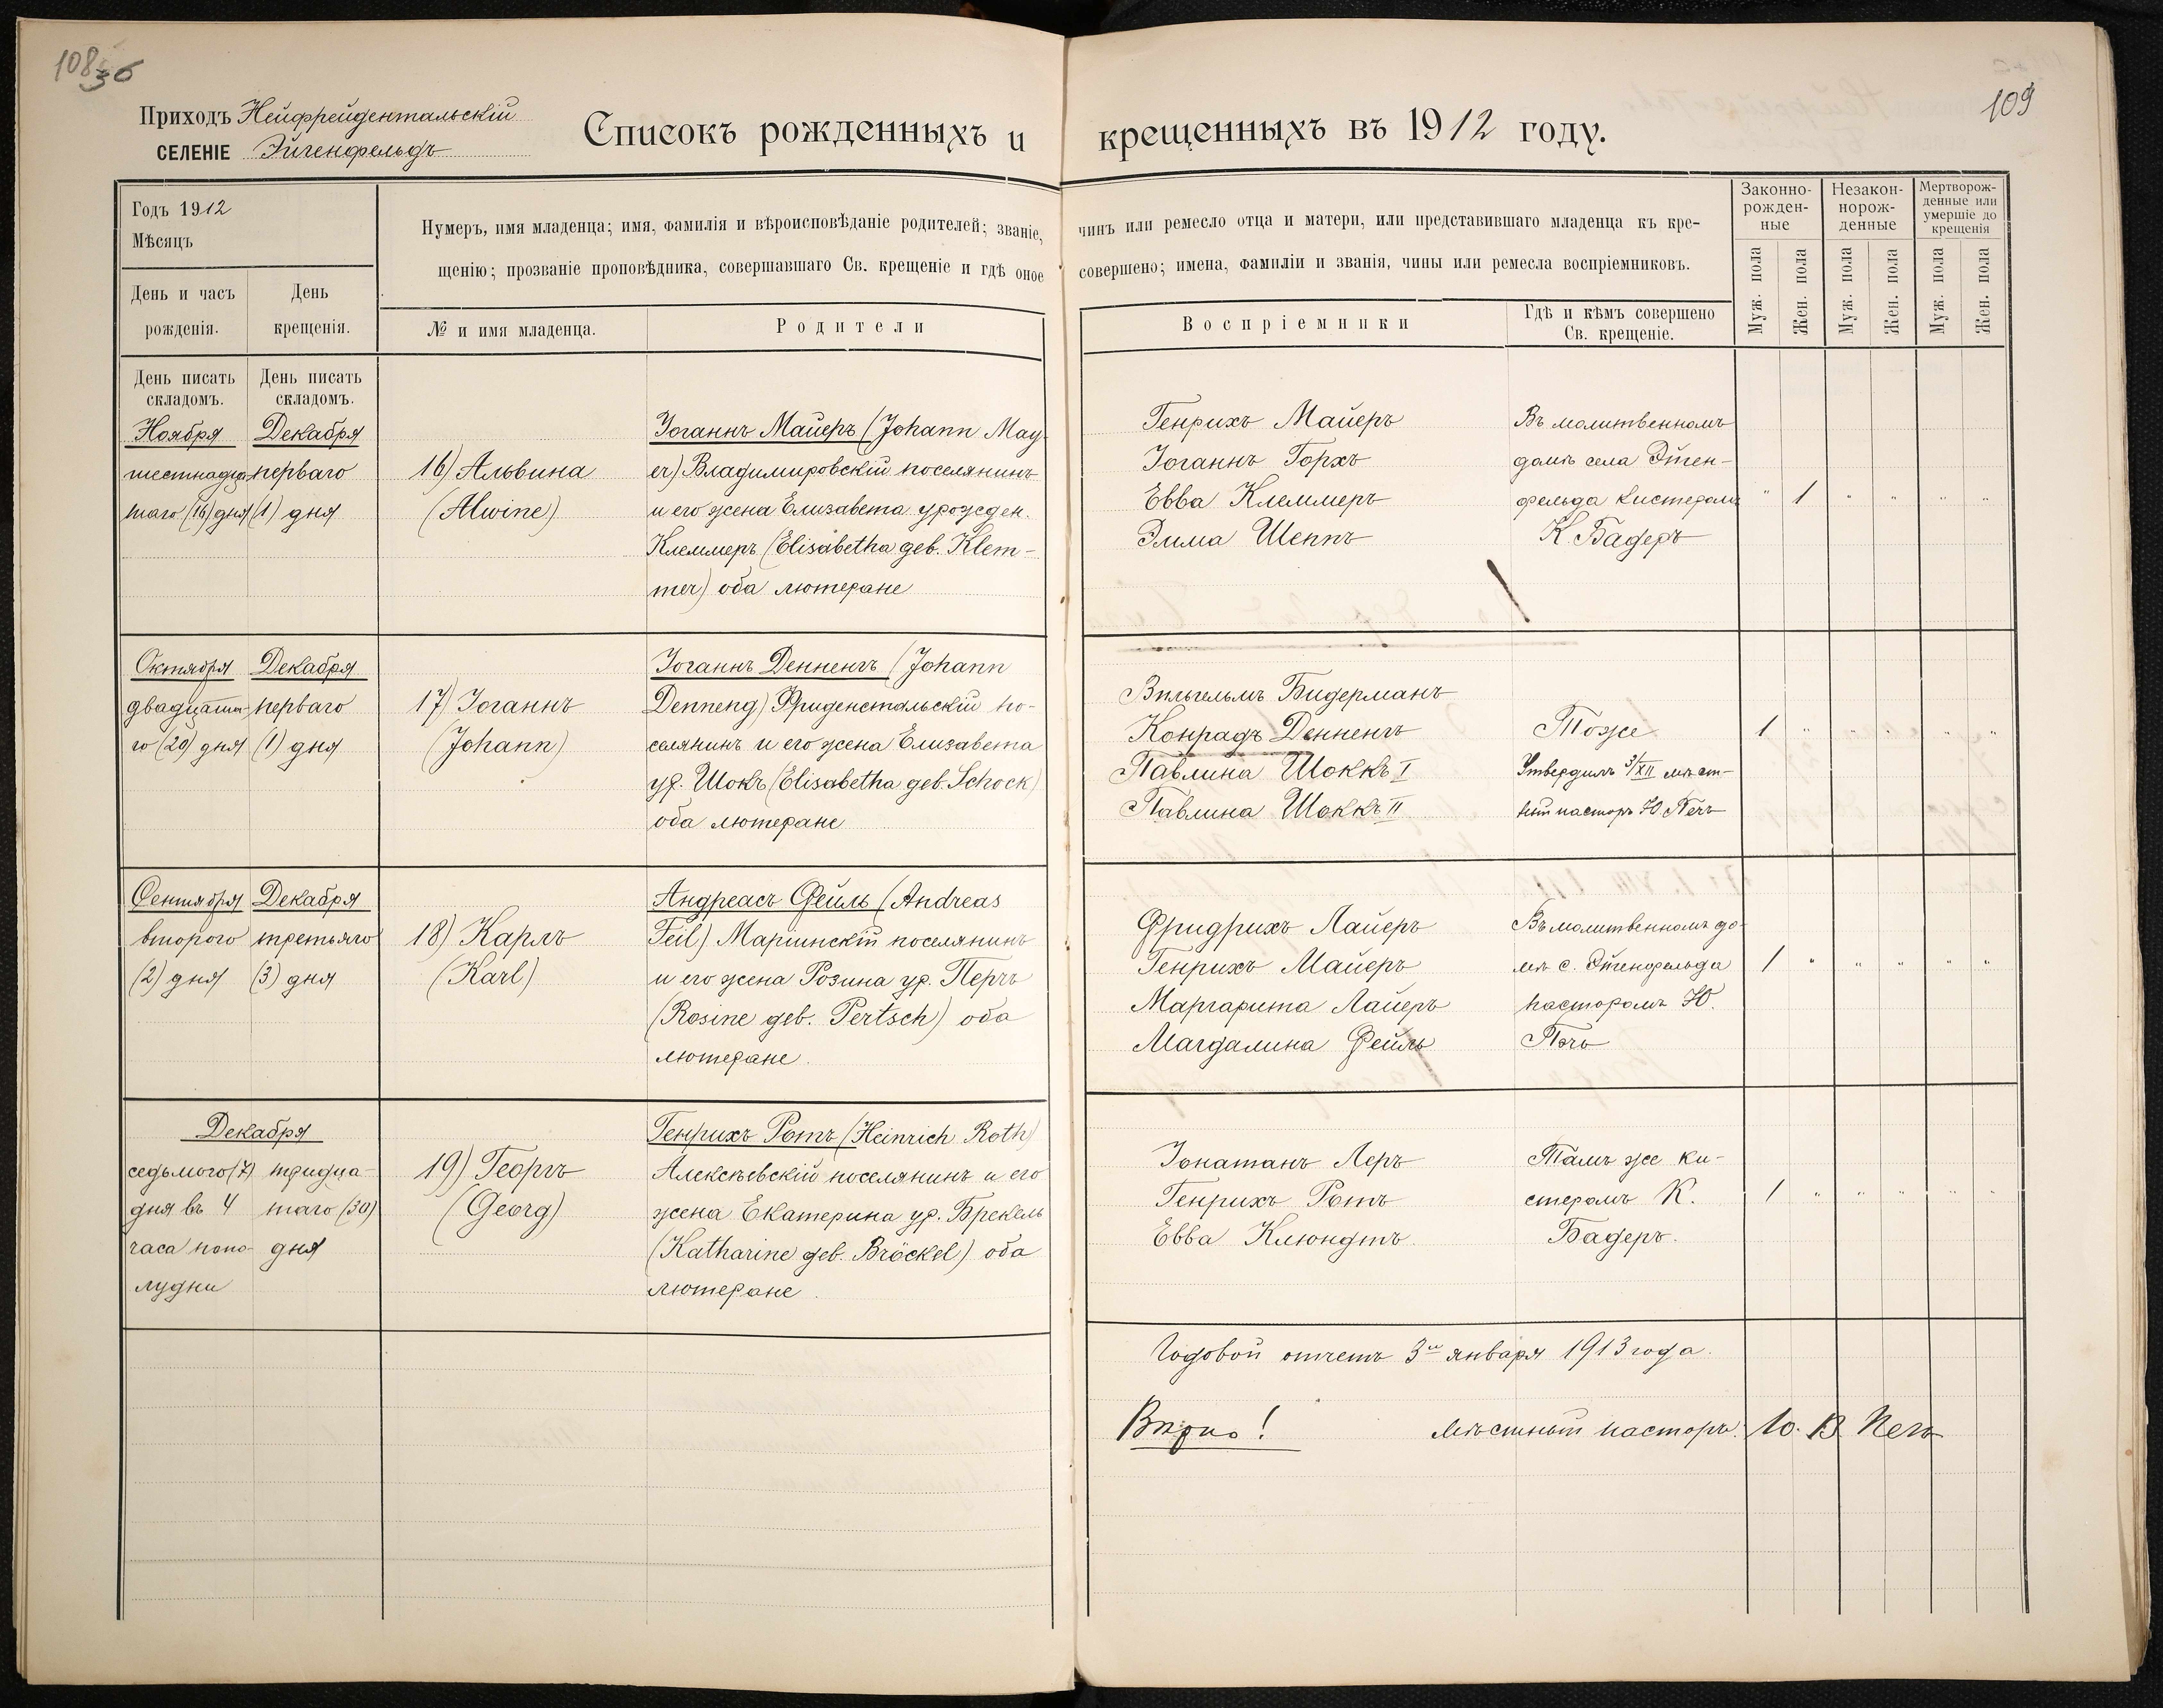 108 36
109
Приходъ Нейфрейдентальскій
СЕЛЕНІЕ Эйгенфельдъ
Списокъ рожденныхъ и крещенныхъ въ 1912 году.
Годъ 1912
Мѣсяцъ
День и часъ рожденія.
День крещенія.
Нумеръ, имя младенца; имя, фамилія и вѣроисповѣданіе родителей; званіе, чинъ или ремесло отца и матери, или представившаго младенца къ кре-
щенію; прозваніе проповѣдника, совершавшаго Св. крещеніе и гдѣ оное совершено; имена, фамиліи и званія, чины или ремесла воспріемниковъ.
№ и имя младенца.
Родители
Воспріемники
Гдѣ и кѣмъ совершено
Св. крещеніе.
Законно-
рожден-
ные
Незакон-
норож-
денные
Мертворож-
денные или
умершіе до
крещенія
Муж. пола
Жен. пола
Муж. пола
Жен. пола
Муж. пола
Жен. пола
День писать
складомъ.
День писать
складомъ.
Ноября
шестнадца-
таго (16) дня
Декабря
перваго
(1) дня
16) Альвина
(Alwine)
Іоганнъ Майеръ (Johann May-
er) Владимировскій поселянинъ
и его жена Елизавета урожден.
Клеммеръ (Elisabetha geb. Klem-
mer) оба лютеране
Генрихъ Майеръ
Іоганнъ Горхъ
Евва Клеммеръ
Эмма Шеппъ
Въ молитвенномъ
домѣ села Эйген-
фельда кистеромъ
К. Бадеръ
" 1 " " " "
Октября
двадцата-
го (20) дня
Декабря
перваго
(1) дня
17) Іоганнъ
(Johann)
Іоганнъ Денненгъ (Johann
Denneng) Фриденстальскій по-
селянинъ и его жена Елизавета
ур. Шокъ (Elisabetha geb. Schock)
оба лютеране
Вильгельмъ Бидерманъ
Конрадъ Денненгъ
Павлина Шоккъ I
Павлина Шоккъ II
Тоже
Утвердилъ 3/XII мѣст-
ный пасторъ Ю Печъ
1 " " " " "
Сентября
второго
(2) дня
Декабря
третьяго
(3) дня
18) Карлъ
(Karl)
Андреасъ Фейль (Andreas
Feil) Маріинскій поселянинъ
и его жена Розина ур. Перчъ
(Rosine geb. Pertsch) оба
лютеране.
Фридрихъ Лайеръ
Генрихъ Майеръ
Маргарита Лайеръ
Магдалина Фейль
Въ молитвенномъ до-
мѣ с. Эйгенфельда
пасторомъ Ю.
Печъ
1 " " " " "
Декабря
седьмого (7)
дня въ 4
часа попо-
лудни
тридца-
таго (30)
дня
19) Георгъ
(Georg)
Генрихъ Ротъ (Heinrich Roth)
Алексѣевскій поселянинъ и его
жена Екатерина ур. Брекель
(Katharine geb. Bröckel) оба
лютеране.
Іонатанъ Леръ
Генрихъ Ротъ
Евва Клюндтъ
Тамъ же ки-
стеромъ К.
Бадеръ.
1 " " " " "
Годовой отчетъ 3го января 1913 года.
Вѣрно! Мѣстный пасторъ: Ю. В Печъ